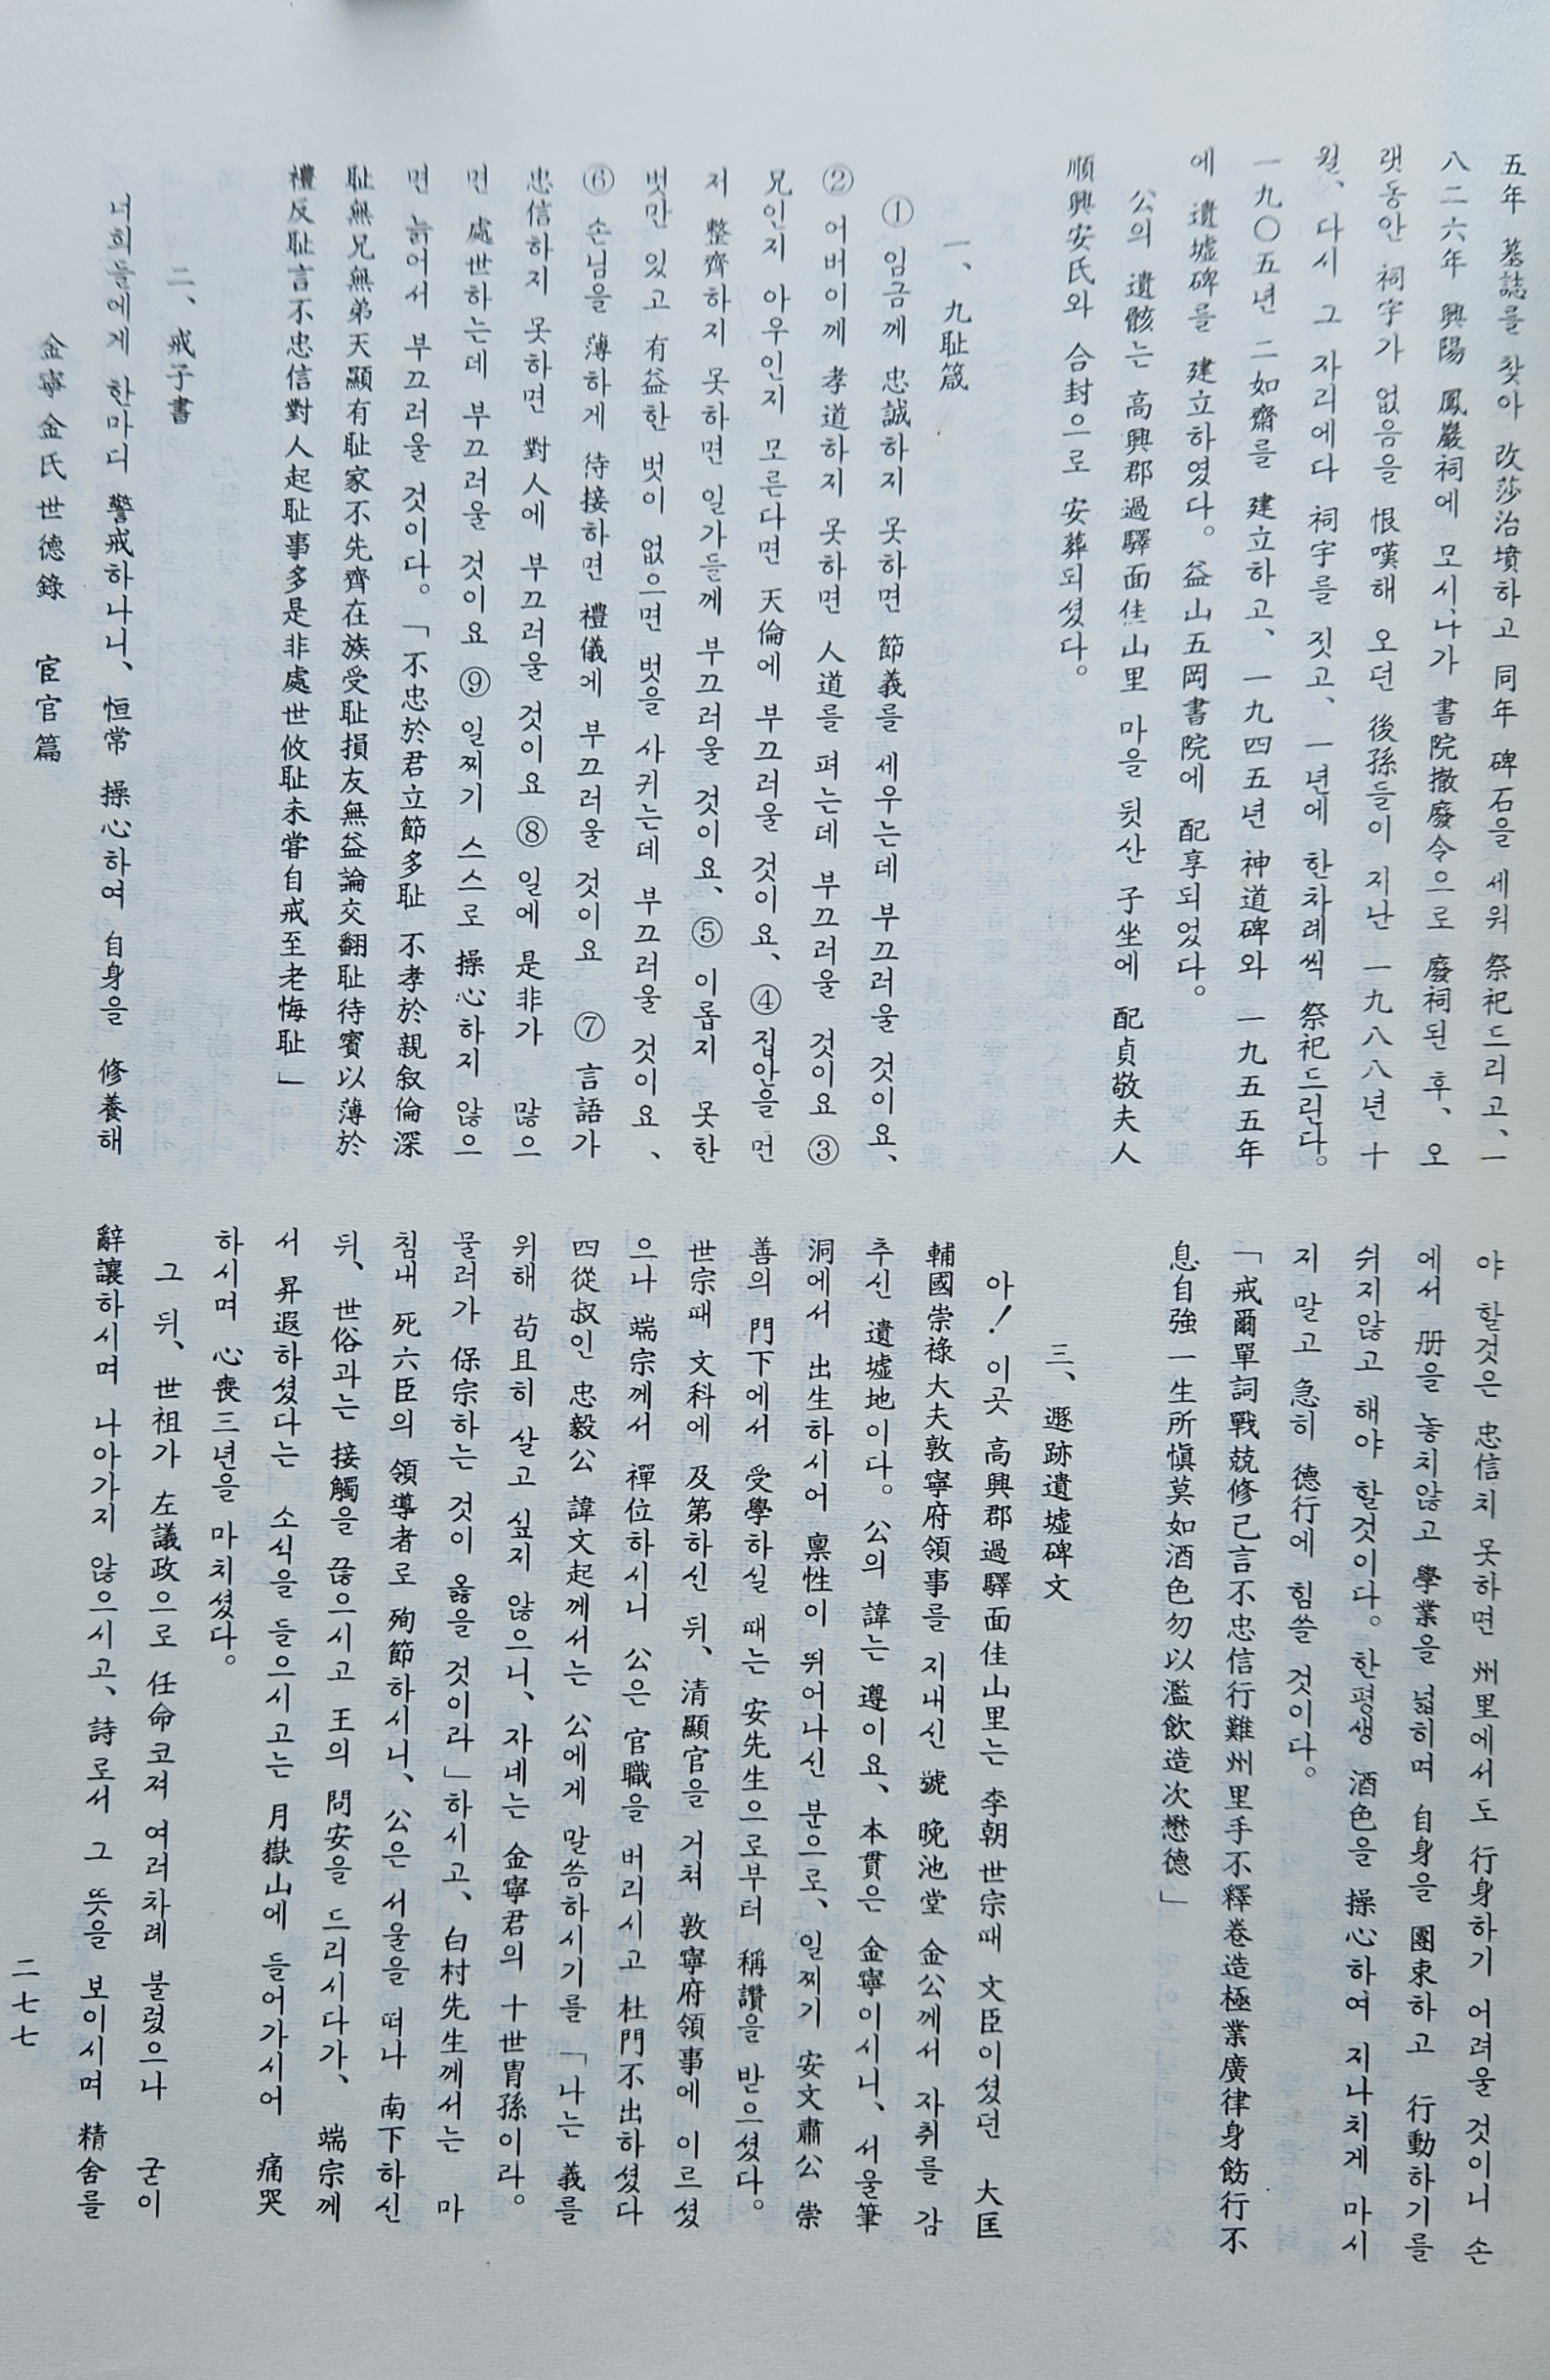 五年 墓誌를 찾아 改莎治墳하고 同年 碑石을 세워 祭祀드리고、一
八二六年 興陽 鳳巖祠에 모시나가 書院撤廢令으로 廢祠된 후、오
랫동안 祠宇가 없음을 恨嘆해 오던 後孫들이 지난 一九八八년 十
월、다시 그 자리에다 祠宇를 짓고、一년에 한차례씩 祭祀드린다。
一九〇五년 二如齋를 建立하고、一九四五년 神道碑와 一九五五年
에 遺墟碑를 建立하였다。益山五岡書院에 配享되었다。
公의 遺骸는 高興郡過驛面佳山里 마을 뒷산 子坐에 配貞敬夫人
順興安氏와 合封으로 安葬되셨다。
一、九耻箴
① 임금께 忠誠하지 못하면 節義를 세우는데 부끄러울 것이요、
② 어버이께 孝道하지 못하면 人道를 펴는데 부끄러울 것이요 ③
兄인지 아우인지 모른다면 天倫에 부끄러울 것이요、④ 집안을 먼
저 整齊하지 못하면 일가들께 부끄러울 것이요、⑤ 이롭지 못한
벗만 있고 有益한 벗이 없으면 벗을 사귀는데 부끄러울 것이요、
⑥ 손님을 薄하게 待接하면 禮儀에 부끄러울 것이요 ⑦ 言語가
忠信하지 못하면 對人에 부끄러울 것이요 ⑧ 일에 是非가 많으
면 處世하는데 부끄러울 것이요 ⑨ 일찌기 스스로 操心하지 않으
면 늙어서 부끄러울 것이다。「不忠於君立節多耻 不孝於親叙倫深
耻無兄無弟天顯有耻家不先齊在族受耻損友無益論交翻耻待賓以薄於
禮反耻言不忠信對人起耻事多是非處世攸耻未甞自戒至老悔耻」
二、戒子書
너희들에게 한마디 警戒하나니、恒常 操心하여 自身을 修養해
야 할것은 忠信치 못하면 州里에서도 行身하기 어려울 것이니 손
에서 册을 놓치않고 學業을 넓히며 自身을 團束하고 行動하기를
쉬지않고 해야 할것이다。한평생 酒色을 操心하여 지나치게 마시
지 말고 急히 德行에 힘쓸 것이다。
「戒爾單詞戰兢修己言不忠信行難州里手不釋卷造極業廣律身飭行不
息自強一生所愼莫如酒色勿以濫飲造次懋德」
三、遯跡遺墟碑文
아! 이곳 高興郡過驛面佳山里는 李朝世宗때 文臣이셨던 大匡
輔國崇祿大夫敦寧府領事를 지내신 號 晩池堂 金公께서 자취를 감
추신 遺墟地이다。公의 諱는 遵이요、本貫은 金寧이시니、서울筆
洞에서 出生하시어 禀性이 뛰어나신 분으로、일찌기 安文肅公 崇
善의 門下에서 受學하실 때는 安先生으로부터 稱讚을 받으셨다。
世宗때 文科에 及第하신 뒤、清顯官을 거쳐 敦寧府領事에 이르셨
으나 端宗께서 禪位하시니 公은 官職을 버리시고 杜門不出하셨다
四從叔인 忠毅公 諱文起께서는 公에게 말씀하시기를 「나는 義를
위해 苟且히 살고 싶지 않으니、자네는 金寧君의 十世胄孫이라。
물러가 保宗하는 것이 옳을 것이라」하시고、白村先生께서는 마
침내 死六臣의 領導者로 殉節하시니、公은 서울을 떠나 南下하신
뒤、世俗과는 接觸을 끊으시고 王의 問安을 드리시다가、端宗께
서 昇遐하셨다는 소식을 들으시고는 月嶽山에 들어가시어 痛哭
하시며 心喪三년을 마치셨다。
그 뒤、世祖가 左議政으로 任命코져 여러차례 불렀으나 굳이
辭讓하시며 나아가지 않으시고、詩로서 그 뜻을 보이시며 精舍를
金寧金氏世德錄 宦官篇
二七七